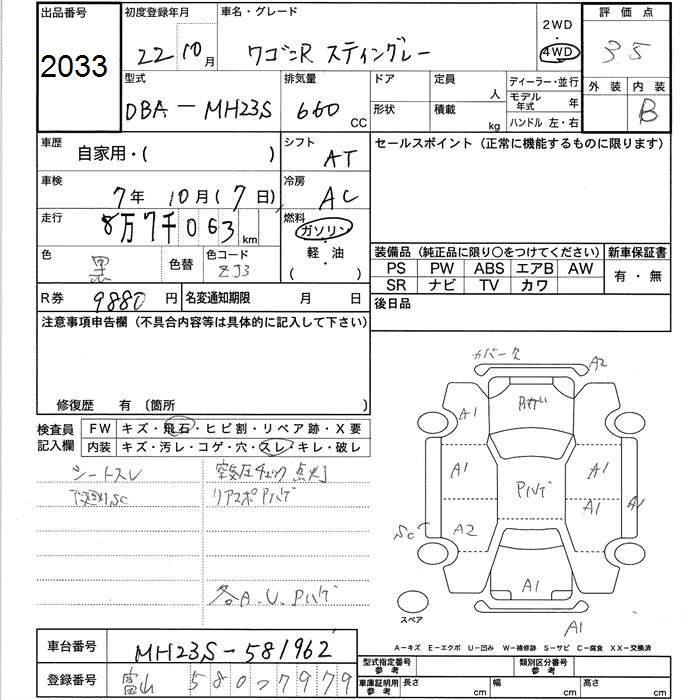 出品番号 初度登録年月 車名・グレード 2WD 評価点
2033 22 10月 ワゴンR スティングレー 4WD 3.5
型式 排気量 ドア 定員 人 ディーラー・並行 外装 内装
DBA-MH23S 660 CC 形状 積載 kg モデル年式 年 B
ハンドル 左・右
車歴 自家用・( ) シフト AT セールスポイント (正常に機能するものに限ります)
車検 7年 10月 (7日) 冷房 AC
走行 8万7千063km 燃料 ガソリン・軽油 ( )
色 黒 色替 色コード ZJ3 装備品 (純正品に限り○をつけてください) 新車保証書
PS PW ABS エアB AW 有・無
SR ナビ TV カワ
R券 9880円 名変通知期限 月 日 後日品
注意事項申告欄 (不具合内容等は具体的に記入して下さい)
修復歴 有 〔箇所 〕
検査員記入欄 FW キズ・飛石・ヒビ割・リペア跡・X要
内装 キズ・汚レ・コゲ・穴・スレ・キレ・破レ
シートスレ 空気圧チェック点灯
下廻りSC リアスポPハゲ
各A.U.Pハゲ
カバーク A2
A1
A1 Pハゲ A1
A1 A1
Sc A2
A1
A1
スペア
A-キズ E-エクボ U-凹み W-補修跡 S-サビ C-腐食 XX-交換済
車台番号 MH23S-581962
登録番号 富山 580 7979
型式指定番号 参考 類別区分番号 参考
車庫証明用 参考 長さ cm 幅 cm 高さ cm